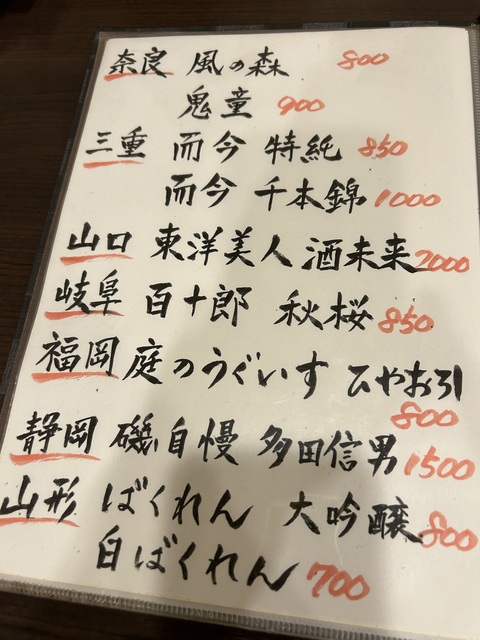 奈良 風の森 800
鬼童 900
三重 而今 特純 850
而今 千本錦 1000
山口 東洋美人 酒未来 2000
岐阜 百十郎 秋桜 850
福岡 庭のうぐいす ひやおろし
800
静岡 磯自慢 多田信男 1500
山形 ばくれん 大吟醸 800
白ばくれん 700